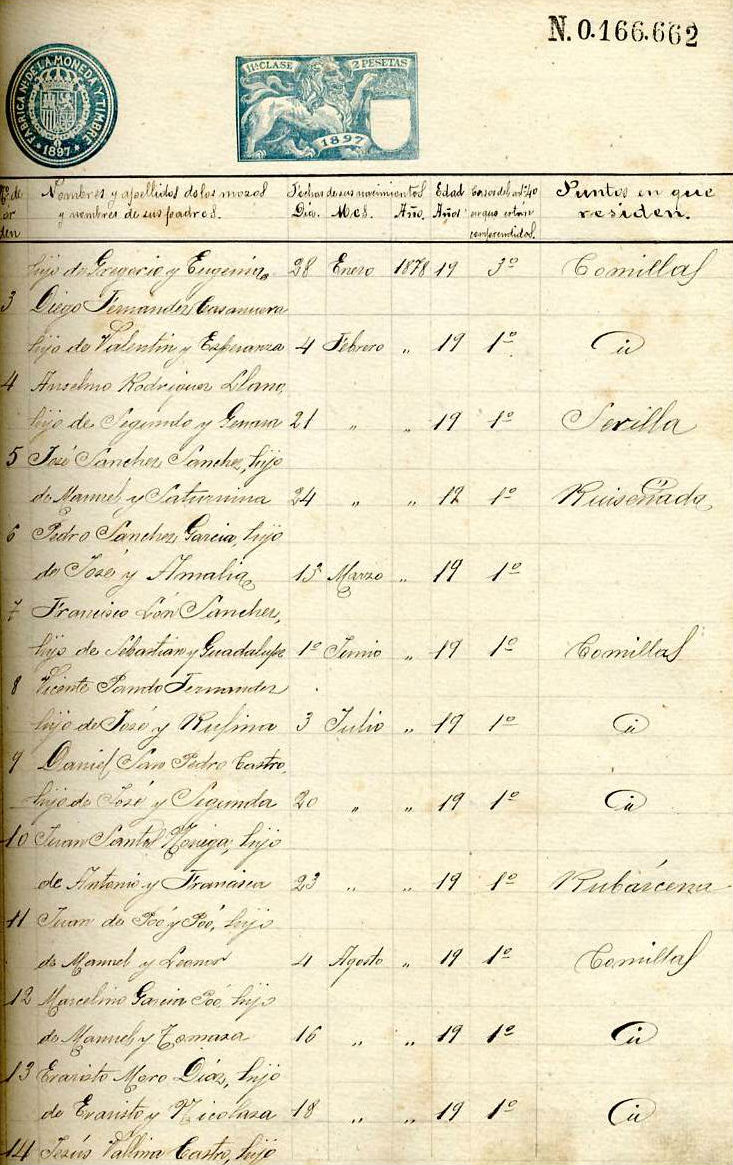 N. 0.166.662
FABRICA Nl. DE LA MONEDA Y TIMBRE
1897
11ª CLASE 2 PESETAS
1897
Nº de or den Nombres y apellidos de los mozos y nombres de sus padres. Fechas de sus nacimientos Día. Mes. Año. Edad Años Casos del artº 40 en que están comprendidos. Puntos en que residen.
hijo de Gregorio y Eugenia 28 Enero 1878 19 3º Comillas
3 Diego Fernandez Casanueva
hijo de Valentin y Esperanza 4 Febrero " 19 1º id
4 Anselmo Rodriguez Llano,
hijo de Segundo y Genara 21 " " 19 1º Sevilla
5 José Sanchez Sanchez, hijo
de Manuel y Saturnina 24 " " 19 1º Ruiseñada
6 Pedro Sanchez Garcia, hijo
de José y Amalia 15 Marzo " 19 1º "
7 Francisco Lón Sanchez,
hijo de Sebastian y Guadalupe 1º Junio " 19 1º Comillas
8 Vicente Pando Fernandez
hijo de José y Rufina 3 Julio " 19 1º id
9 Daniel San Pedro Castro,
hijo de José y Segunda 20 " " 19 1º id
10 Juan Santel Noriega, hijo
de Antonio y Francisca 23 " " 19 1º Rubárcena
11 Juan de Poó y Poó, hijo
de Manuel y Leonor 4 Agosto " 19 1º Comillas
12 Marcelino Garcia Poó, hijo
de Manuel y Tomasa 16 " " 19 1º id
13 Evaristo Moro Díaz, hijo
de Evaristo y Nicolasa 18 " " 19 1º id
14 Jesús Vallina Castro, hijo